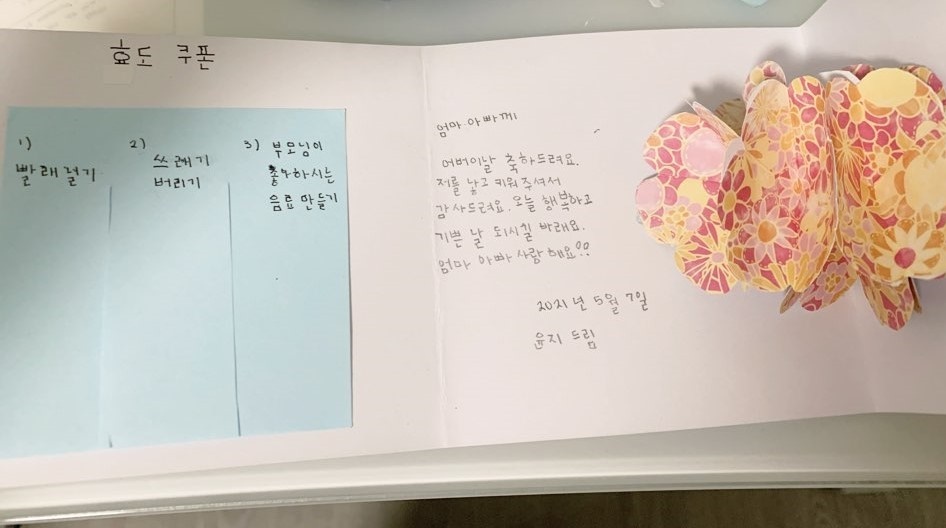 효도 쿠폰
1)
빨래널기
2)
쓰레기
버리기
3) 부모님이
좋아하시는
음료 만들기
엄마 아빠께
어버이날 축하드려요.
저를 낳고 키워 주셔서
감사드려요. 오늘 행복하고
기쁜 날 되시길 바래요.
엄마 아빠 사랑해요!!
2021년 5월 7일
윤지 드림